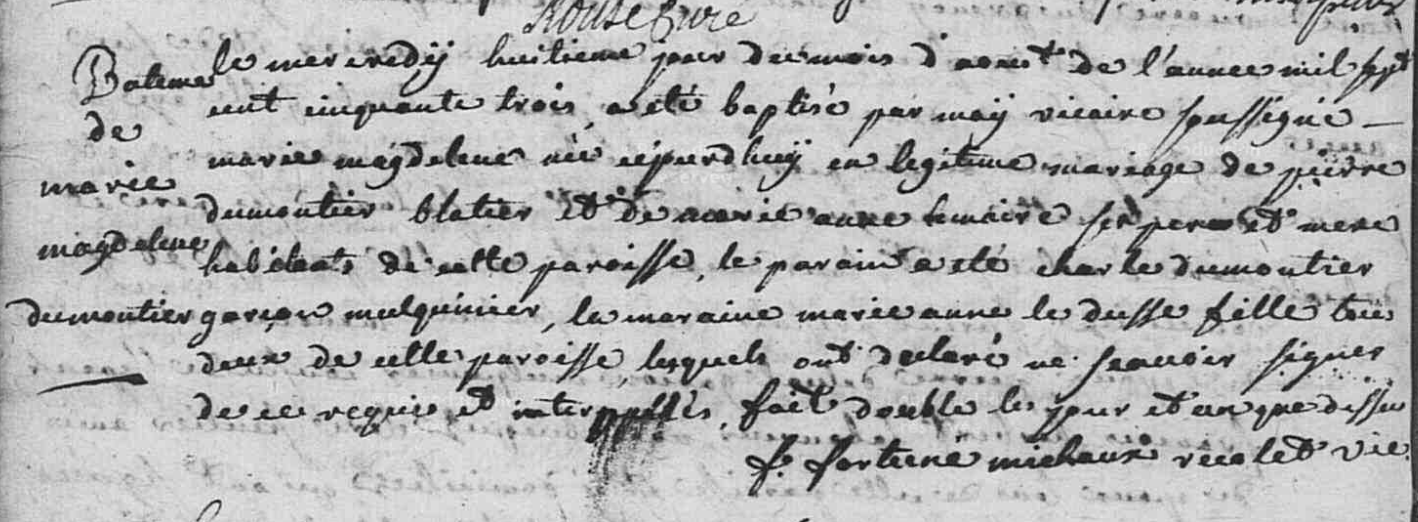 Rousé Curé
Bateme
de
marie
magdelene
dumontier
le mercredÿ huitieme jour du mois d'aoust de l'annee mil sept
cent cinquante trois, a eté baptisé par moÿ vicaire soussigné
marie magdelene née aujourdhuÿ en legitime mariage de pierre
dumontier blatier et de marie anne lemaire ses pere et mere
habitants de cette paroisse, le parain a eté charle dumontier
garçon mulquinier, la maraine marie anne le dusse fille tous
deux de cette paroisse, lesquels ont declaré ne scavoir signer
de ce requis et interpellés, fait double les jour et an que dessus
f. fortuné michaux recolet vic.